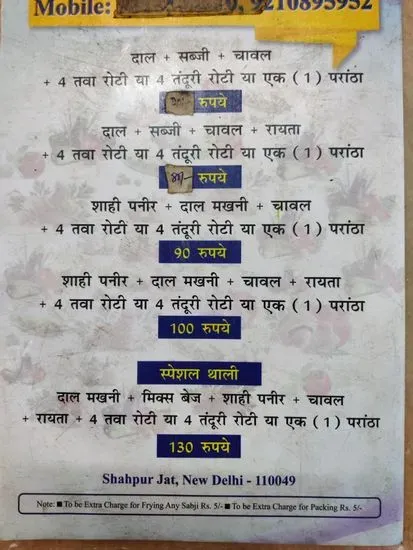 Mobile: 9210895952
दाल + सब्जी + चावल
+ 4 तवा रोटी या 4 तंदूरी रोटी या एक ( 1 ) परांठा
रुपये
दाल + सब्जी + चावल + रायता
+ 4 तवा रोटी या 4 तंदूरी रोटी या एक ( 1 ) परांठा
80/- रुपये
शाही पनीर + दाल मखनी + चावल
+ 4 तवा रोटी या 4 तंदूरी रोटी या एक ( 1 ) परांठा
90 रुपये
शाही पनीर + दाल मखनी + चावल + रायता
+ 4 तवा रोटी या 4 तंदूरी रोटी या एक ( 1 ) परांठा
100 रुपये
स्पेशल थाली
दाल मखनी + मिक्स बेज + शाही पनीर + चावल
+ रायता + 4 तवा रोटी या 4 तंदूरी रोटी या एक ( 1 ) परांठा
130 रुपये
Shahpur Jat, New Delhi - 110049
Note: ■ To be Extra Charge for Frying Any Sabji Rs. 5/- ■ To be Extra Charge for Packing Rs. 5/-